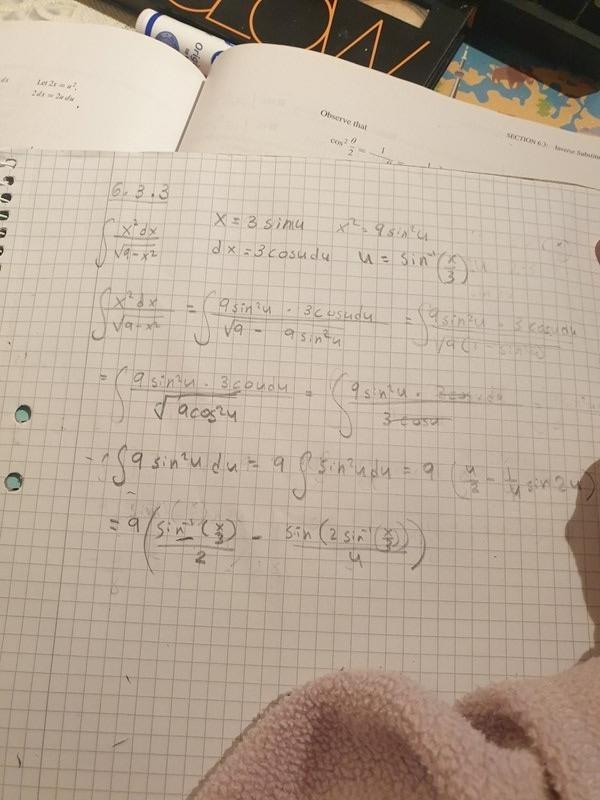 GLOW
Ori
dx Let 2x = u²,
2 dx = 2u du
Observe that
SECTION 6.3: Inverse
cos² θ/2 = 1
6.3.3
∫ x²dx/√(9-x²) x = 3 sinu x² = 9 sin²u
dx = 3cosudu u = sin⁻¹(x/3)
∫ x²dx/√(9-x²) = ∫ 9sin²u · 3cosudu/√(9 - 9sin²u) = ∫ 9sin²u · 3cosudu/√(9(1-sin²u))
= ∫ 9sin²u · 3cosudu/√(9cos²u) = ∫ 9sin²u · 3cosu · du/3cosu
∫ 9 sin²u du = 9 ∫ sin²u du = 9 (u/2 - 1/4 sin2u)
= 9 (sin⁻¹(x/3)/2 - sin(2 sin⁻¹(x/3))/4)